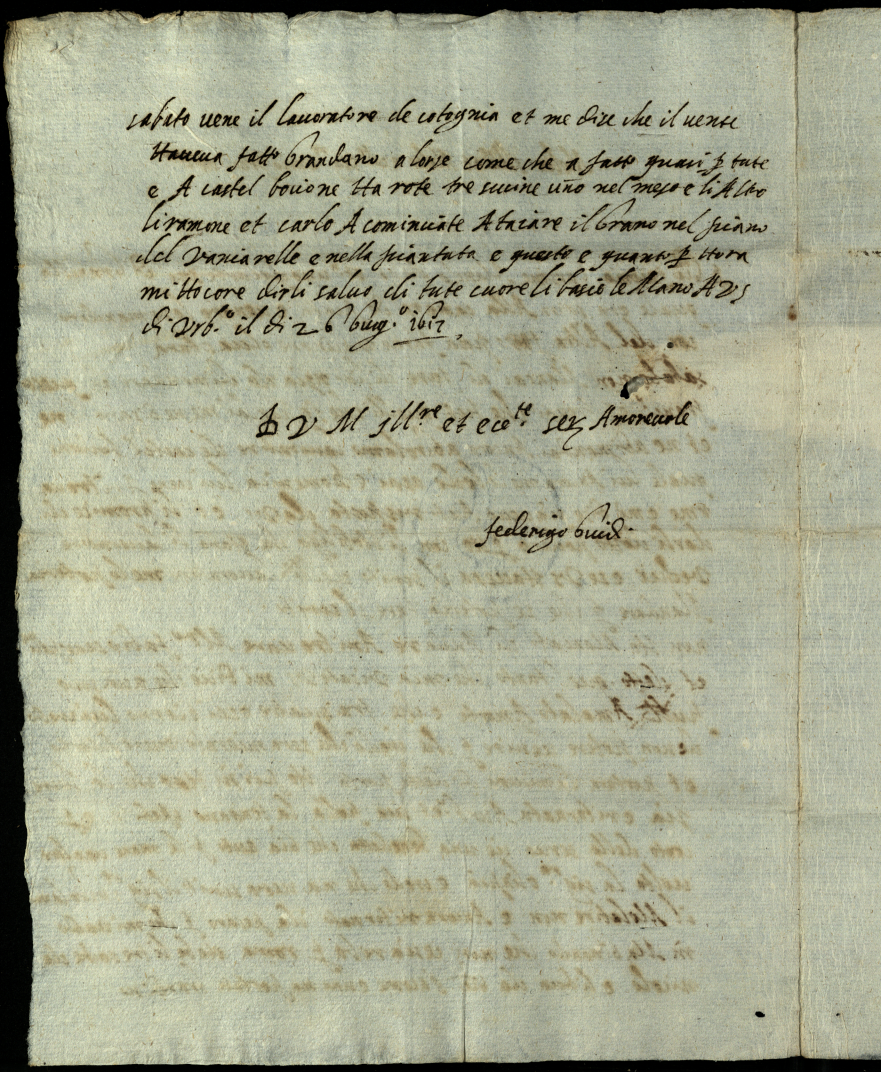 sabato vene il lavoratore de cotognia et me dice che il vente
Haveva fatto grandano a lorse come che a fatto quasi p tute
e A castel bovione Ha rote tre sucine uno nel mezo e li Alto
li ramone et carlo A cominciate A taiare il grano nel piano
del Vaniarelle e nella piantata e questo e quanto p Hora
mi Hocore dirli salvo di tute cuore li bascio le Mano A VS
di Urb.º il di 26 Giug.º 1612
D V M Ill.re et ece.te ser Amorevole
federigo Guid.